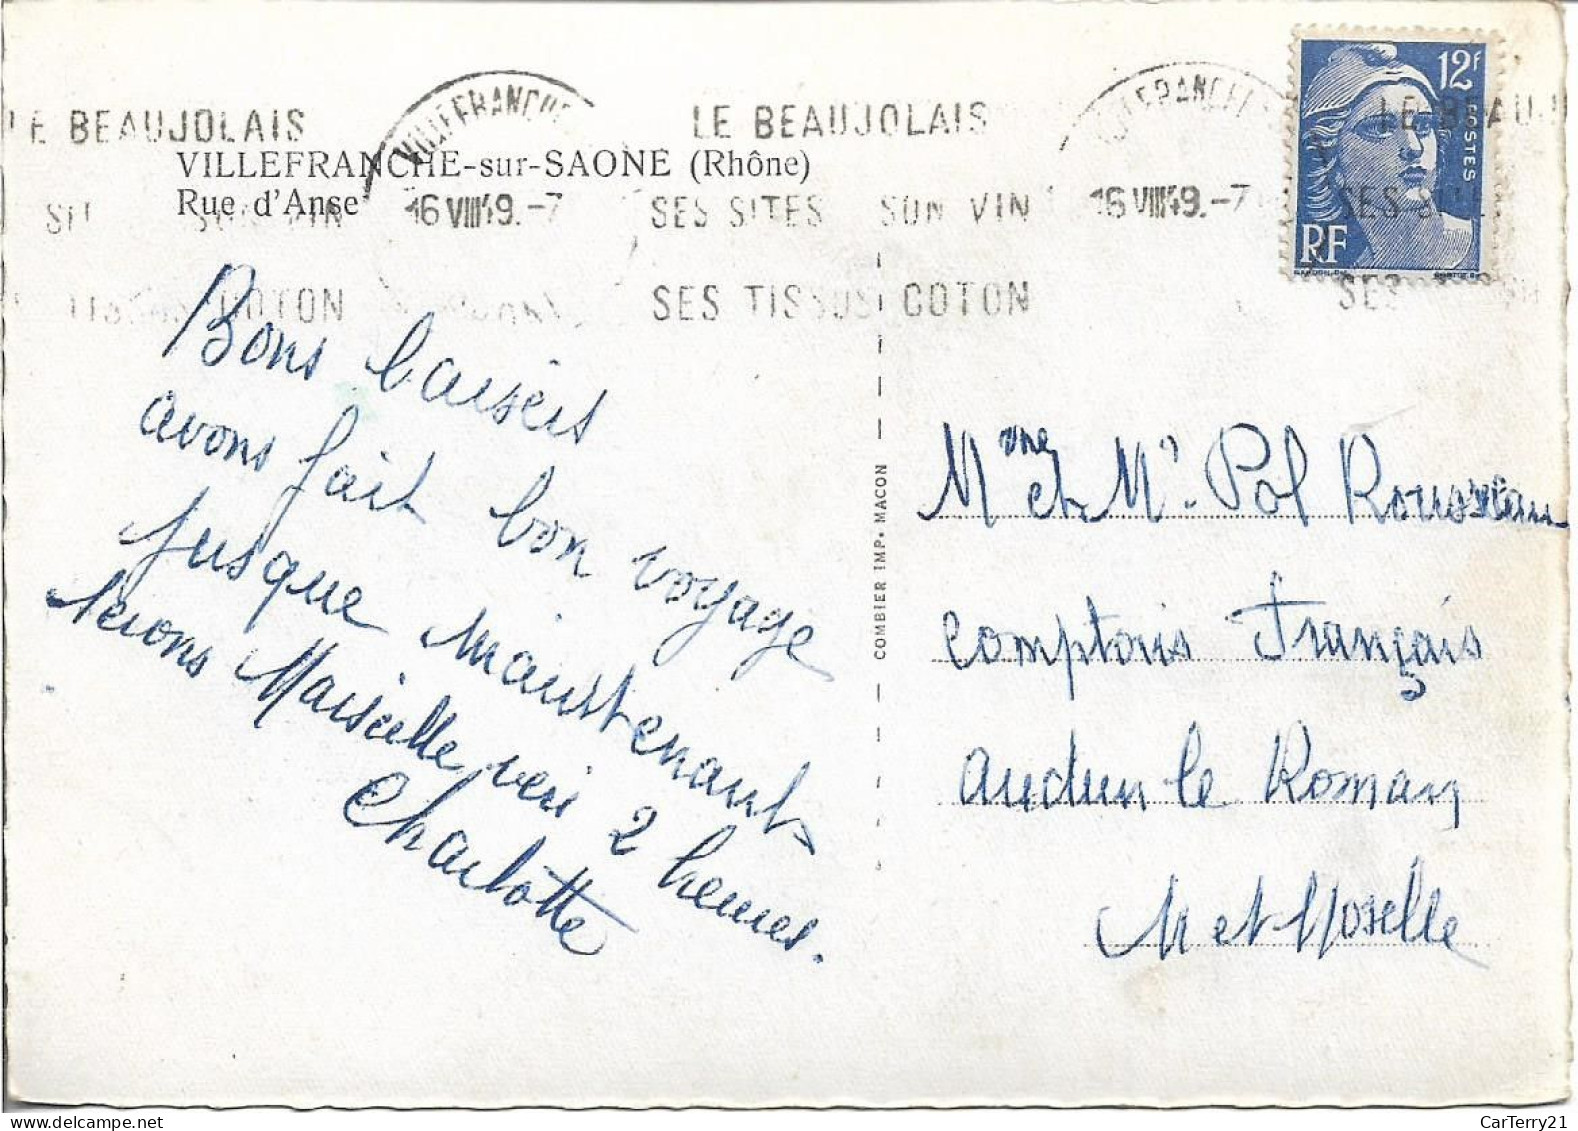 LE BEAUJOLAIS
VILLEFRANCHE
LE BEAUJOLAIS
VILLEFRANCHE
LE BEAUJ
VILLEFRANCHE-sur-SAONE (Rhône)
Rue d'Anse
SON VIN
16 VIII 49. -7
SES SITES SON VIN
16 VIII 49. -7
SES SI
COTON
SES TISSUS COTON
SES
12f
POSTES
RF
GANDON
Bons baisers
avons fait bon voyage
jusque maintenant
serons Marseille vers 2 heures.
Charlotte
COMBIER IMP. MACON
Mme et Mr. Pol Rousseau
Comptoirs Français
Audun le Roman
M et Moselle
CarTerry21